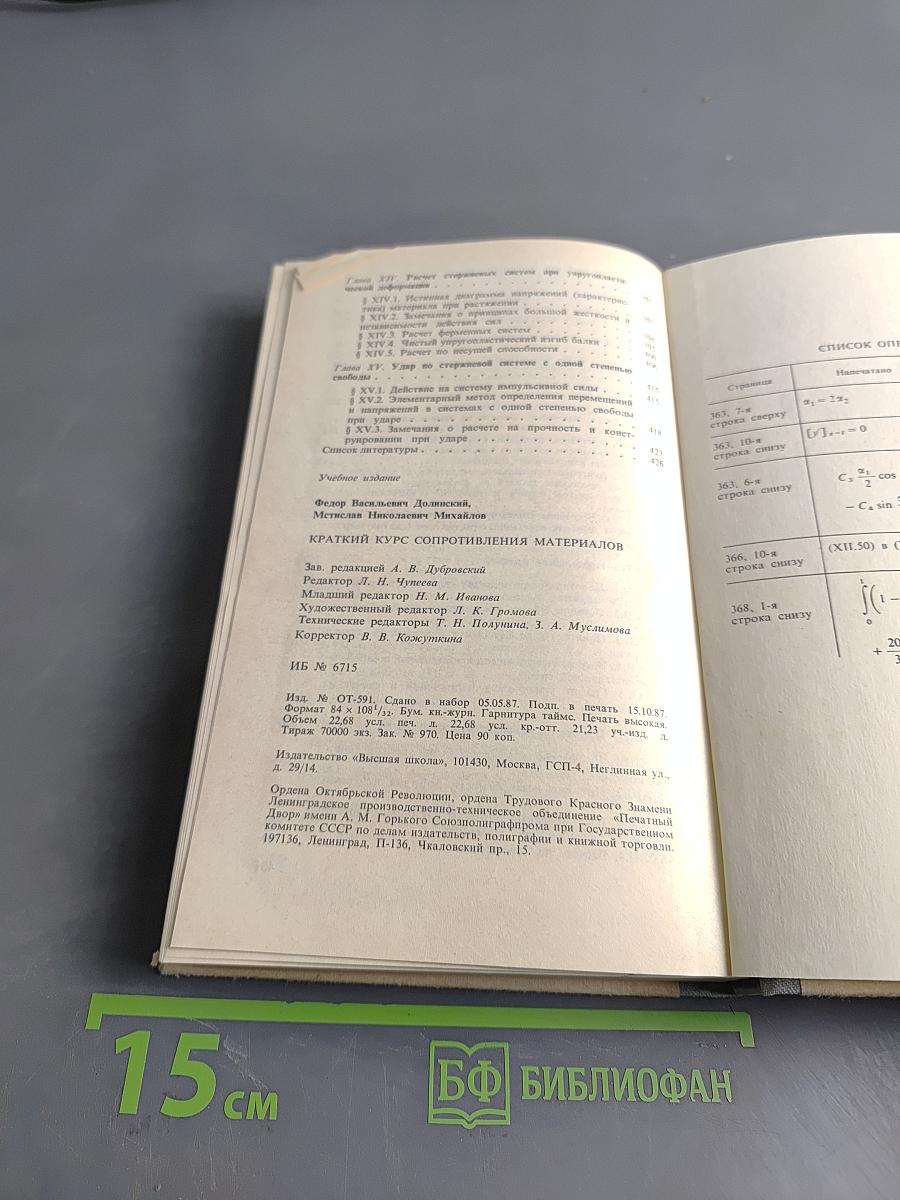 Глава XIV. Расчет стержневых систем при упругопласти-
ческой деформации
§ XIV.1. Истинная диаграмма напряжений (характерис-
тика) материала при растяжении
§ XIV.2. Замечания о принципах большой жесткости и
независимости действия сил
§ XIV.3. Расчет ферменных систем
§ XIV.4. Чистый упругопластический изгиб балки
§ XIV.5. Расчет по несущей способности
Глава XV. Удар по стержневой системе с одной степенью
свободы
§ XV.1. Действие на систему импульсивной силы
§ XV.2. Элементарный метод определения перемещений
и напряжений в системах с одной степенью свободы
при ударе 418
§ XV.3. Замечания о расчете на прочность и конст-
руировании при ударе 423
Список литературы 426
Учебное издание
Федор Васильевич Долинский,
Мстислав Николаевич Михайлов
КРАТКИЙ КУРС СОПРОТИВЛЕНИЯ МАТЕРИАЛОВ
Зав. редакцией А. В. Дубровский
Редактор Л. Н. Чупеева
Младший редактор Н. М. Иванова
Художественный редактор Л. К. Громова
Технические редакторы Т. Н. Полунина, З. А. Муслимова
Корректор В. В. Кожуткина
ИБ № 6715
Изд. № ОТ-591. Сдано в набор 05.05.87. Подп. в печать 15.10.87.
Формат 84 × 108¹/₃₂. Бум. кн.-журн. Гарнитура таймс. Печать высокая.
Объем 22,68 усл. печ. л. 22,68 усл. кр.-отт. 21,23 уч.-изд. л.
Тираж 70000 экз. Зак. № 970. Цена 90 коп.
Издательство «Высшая школа», 101430, Москва, ГСП-4, Неглинная ул.,
д. 29/14.
Ордена Октябрьской Революции, ордена Трудового Красного Знамени
Ленинградское производственно-техническое объединение «Печатный
Двор» имени А. М. Горького Союзполиграфпрома при Государственном
комитете СССР по делам издательств, полиграфии и книжной торговли.
197136, Ленинград, П-136, Чкаловский пр., 15.
СПИСОК ОПЕ
Страница Напечатано
363, 7-я
строка сверху α₁ = 2α₂
363, 10-я
строка снизу
363, 6-я
строка снизу C₃ α₁/2 cos
− C₄ sin
366, 10-я
строка снизу (XII.50) в (
368, 1-я
строка снизу ∫(1 −
+ 20
15 см
БФ БИБЛИОФАН